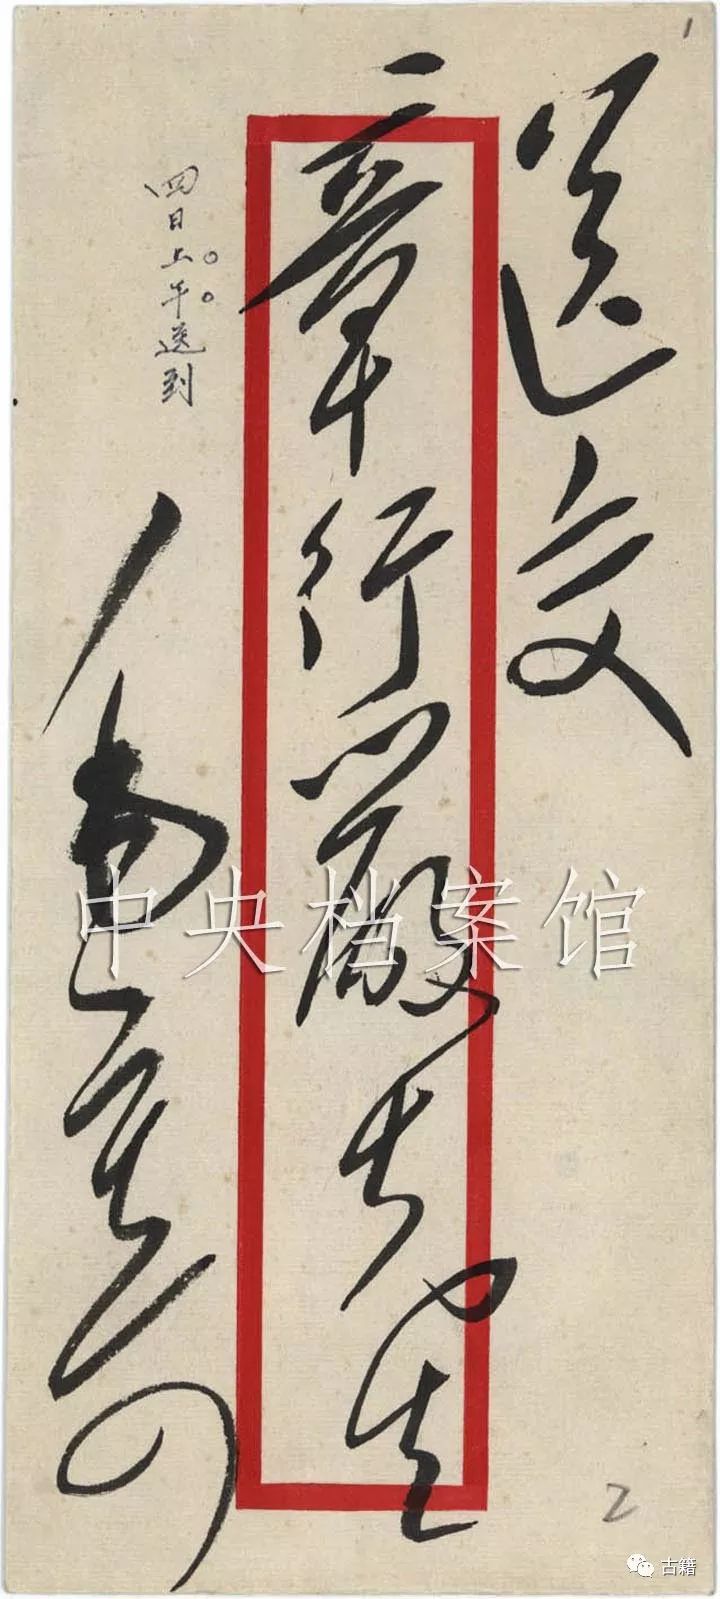 1
送交
章行嚴先生
四日上午送到
中央档案馆
2
古籍